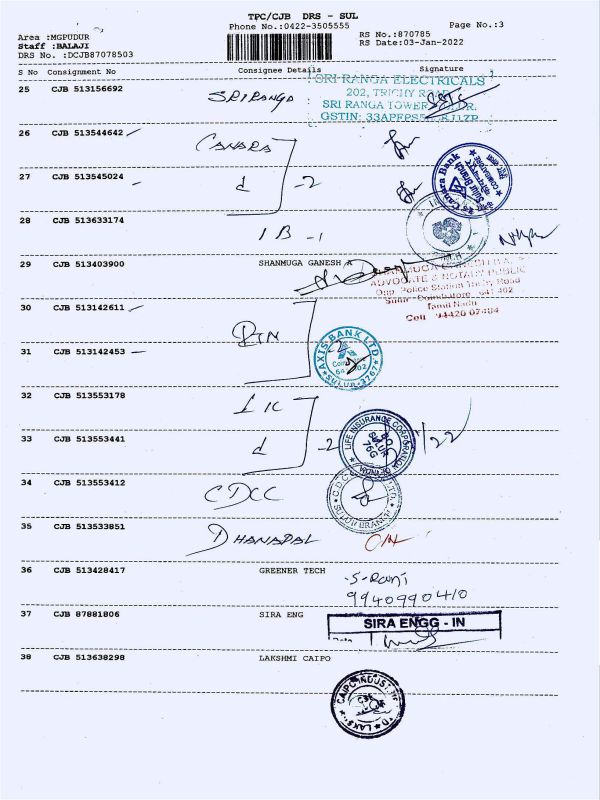 TPC/CJB DRS - SUL
Phone No.:0422-3505555
Page No.:3
Area :MGPUDUR
Staff :BALAJI
DRS No. :DCJB87078503
RS No.:870785
RS Date:03-Jan-2022
S No Consignment No Consignee Details Signature
25 CJB 513156692 SRIRANGA
SRI RANGA ELECTRICALS
202, TRICHY ROAD
SRI RANGA TOWER
GSTIN:
26 CJB 513544642 CANARA
27 CJB 513545024 d -2
Canara Bank
Sulur Branch
28 CJB 513633174 IB -1
29 CJB 513403900 SHANMUGA GANESH A
ADVOCATE & NOTARY PUBLIC
Opp. Police Station Trichy Road
Sulur - Coimbatore - 641 402
Tamil Nadu
Cell : 94420 07484
30 CJB 513142611
31 CJB 513142453 -2
AXIS BANK LTD.
SULUR-3267
32 CJB 513553178 LIC
33 CJB 513553441 d -2
LIFE INSURANCE CORPORATION
SULUR
76G
34 CJB 513553412 CDCC
SULUR BRANCH
35 CJB 513533851 DHANAPAL
36 CJB 513428417 GREENER TECH
S-Rani
9940990410
37 CJB 87881806 SIRA ENG
SIRA ENGG - IN
38 CJB 513638298 LAKSHMI CAIPO